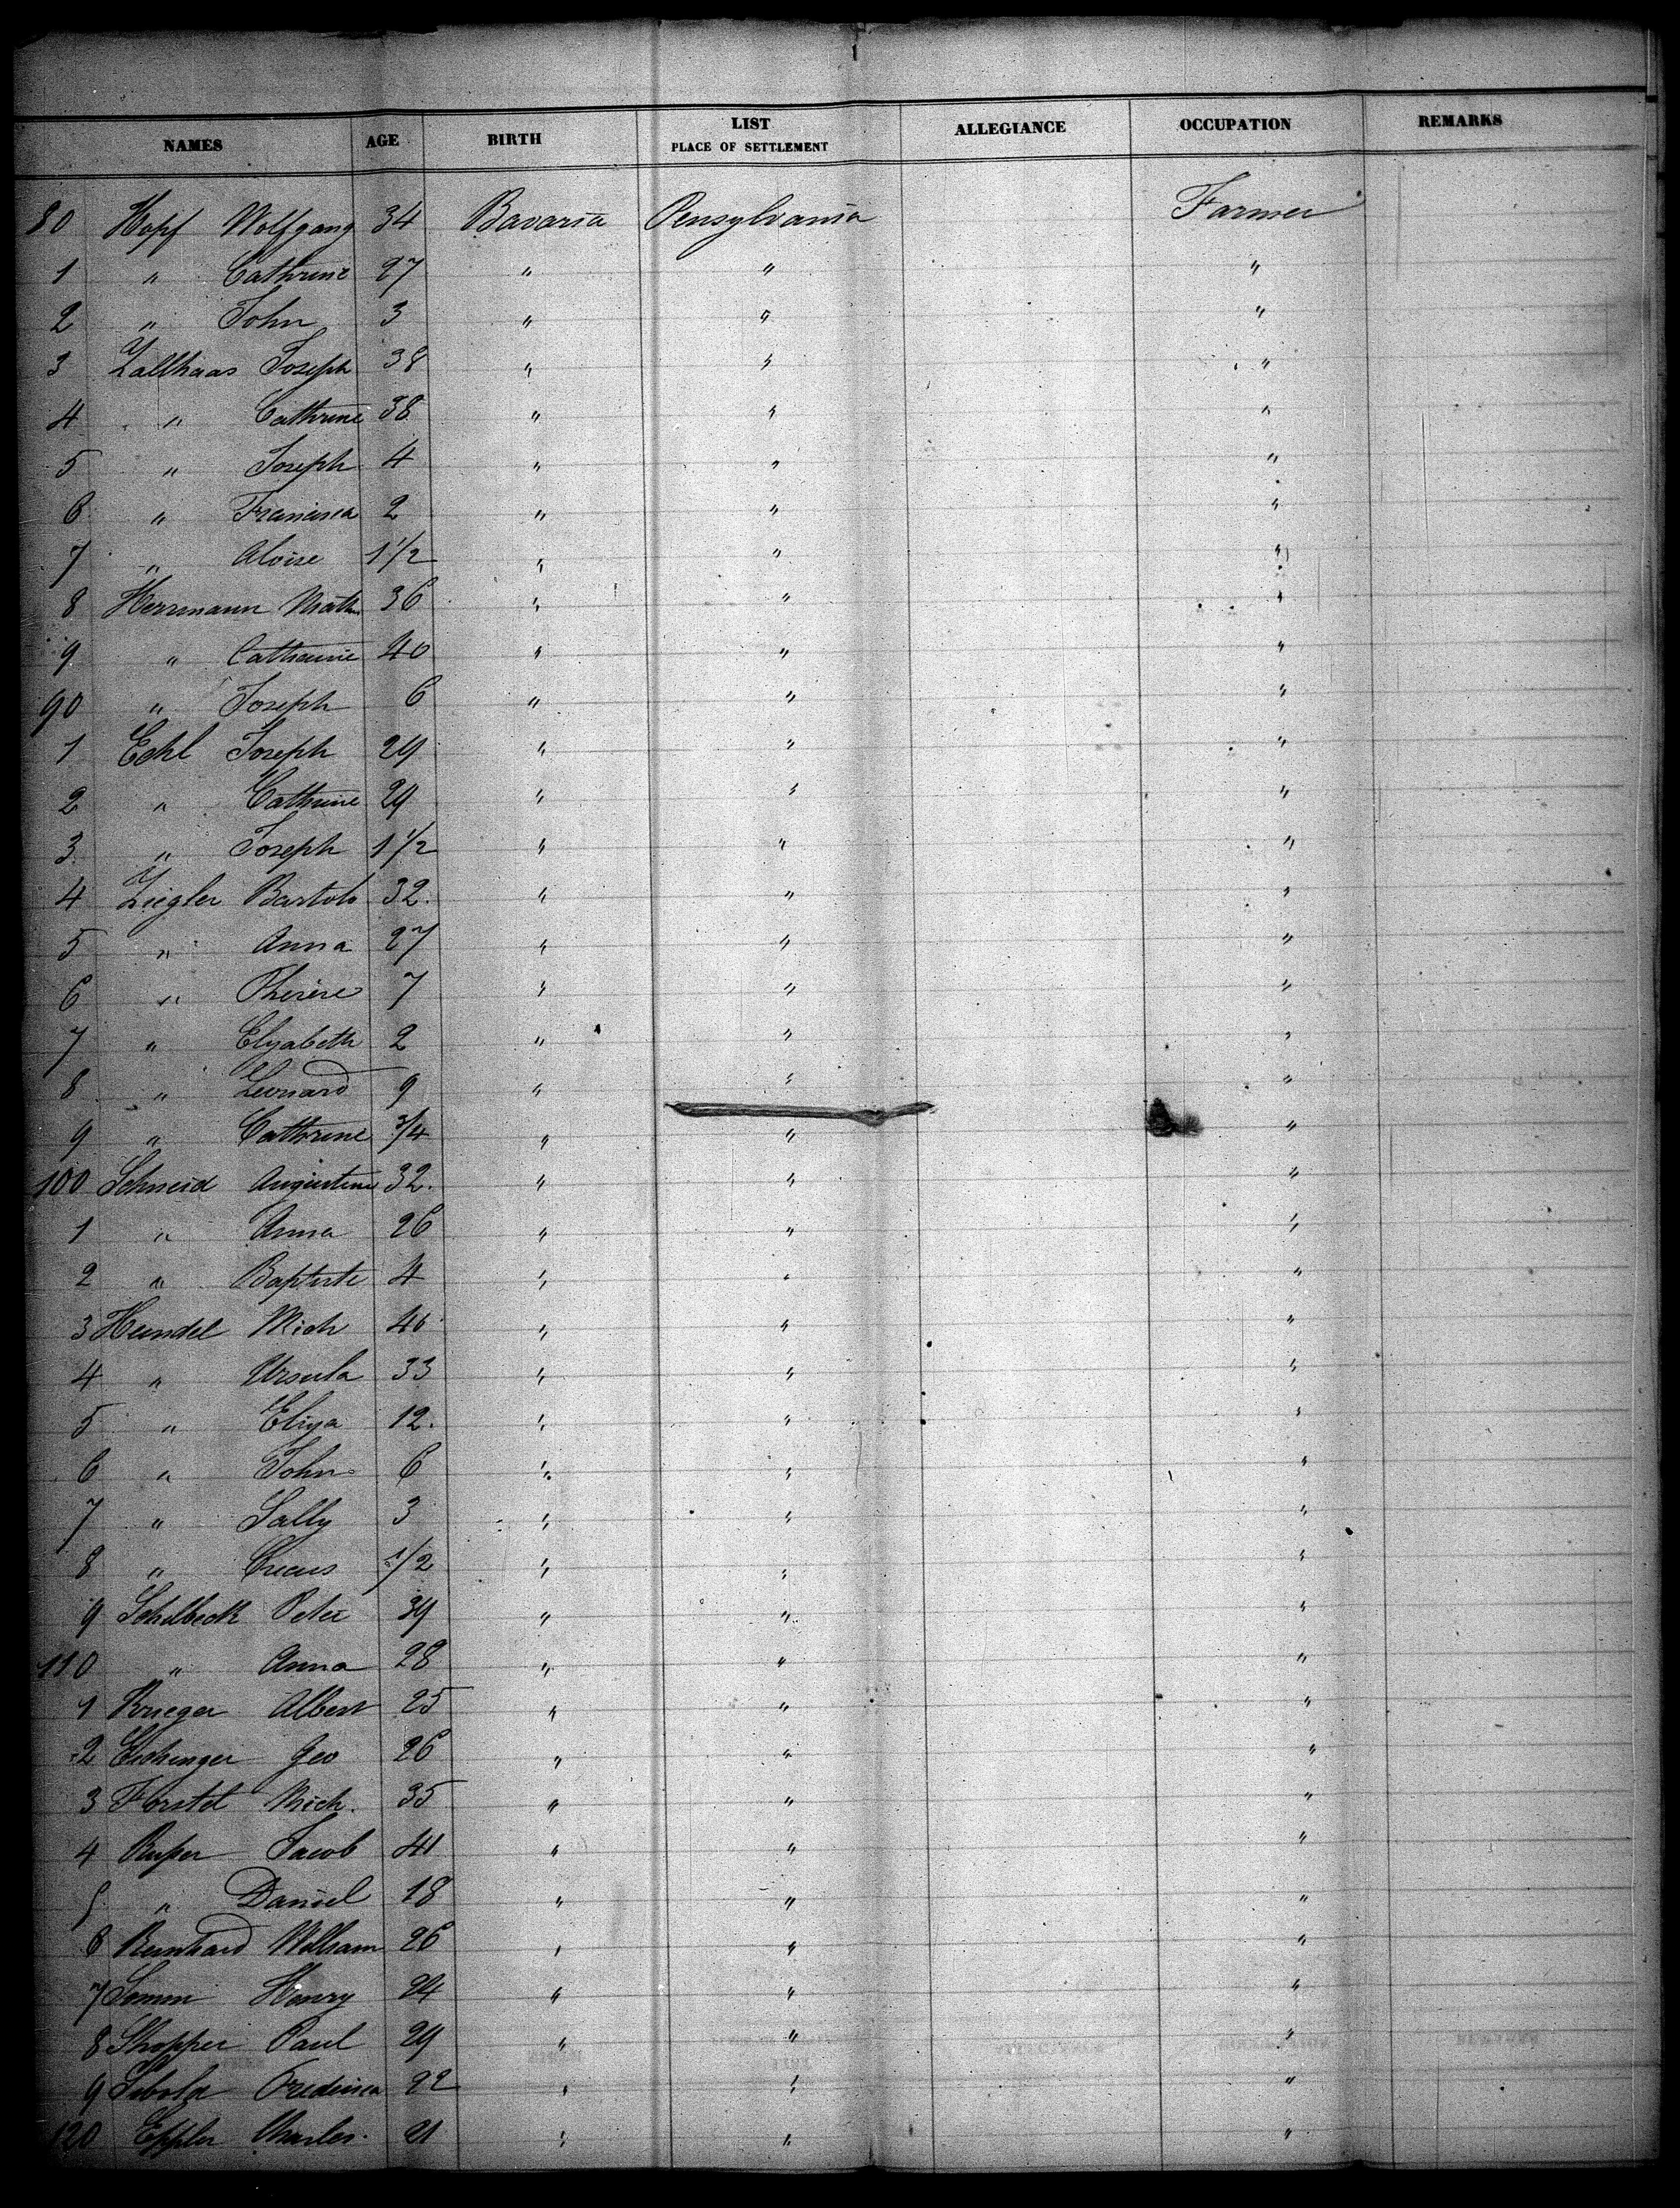 NAMES AGE BIRTH LIST PLACE OF SETTLEMENT ALLEGIANCE OCCUPATION REMARKS
80 Hopf Wolfgang 34 Bavaria Pensylvania Farmer
1 " Cathrine 27 " " "
2 " John 3 " " "
3 Zallhaas Joseph 38 " " "
4 " Cathrine 38 " " "
5 " Joseph 4 " " "
6 " Francisca 2 " " "
7 " Aloise 1 1/2 " " "
8 Herrmann Math 36 " " "
9 " Catherine 40 " " "
90 " Joseph 6 " " "
1 Echl Joseph 29 " " "
2 " Cathrine 29 " " "
3 " Joseph 1 1/2 " " "
4 Ziegler Bartolo 32. " " "
5 " Anna 27 " " "
6 " Therese 7 " " "
7 " Elysabeth 2 " " "
8 " Leonard 9 " " "
9 " Cathrine 3/4 " " "
100 Schneid Augustine 32. " " "
1 " Anna 26 " " "
2 " Baptiste 4 " " "
3 Heindel Mich 40 " " "
4 " Ursula 33 " " "
5 " Eliya 12. " " "
6 " John 6 " " "
7 " Sally 3 " " "
8 " 1/2 " " "
9 Schilbeck Peter 39 " " "
110 " Anna 28 " " "
1 Krieger Albert 25 " " "
2 Eichinger Geo 26 " " "
3 Forstel Mich. 35 " " "
4 Jacob 41 " " "
5 " Daniel 18 " " "
6 Reinhard William 26 " " "
7 Henry 24 " " "
8 Shopper Paul 29 " " "
9 Sibold Frederica 22 " " "
120 Eppler Charles. 21 " " "